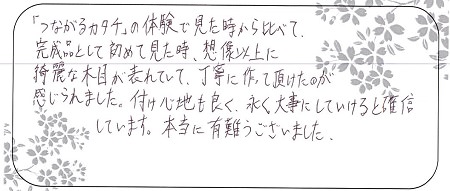 「つながるカタチ」の体験で見た時から比べて、
完成品として初めて見た時、想像以上に
綺麗な木目が表れていて、丁寧に作って頂けたのが
感じられました。付け心地も良く、永く大事にしていけると確信
しています。本当に有難うございました。